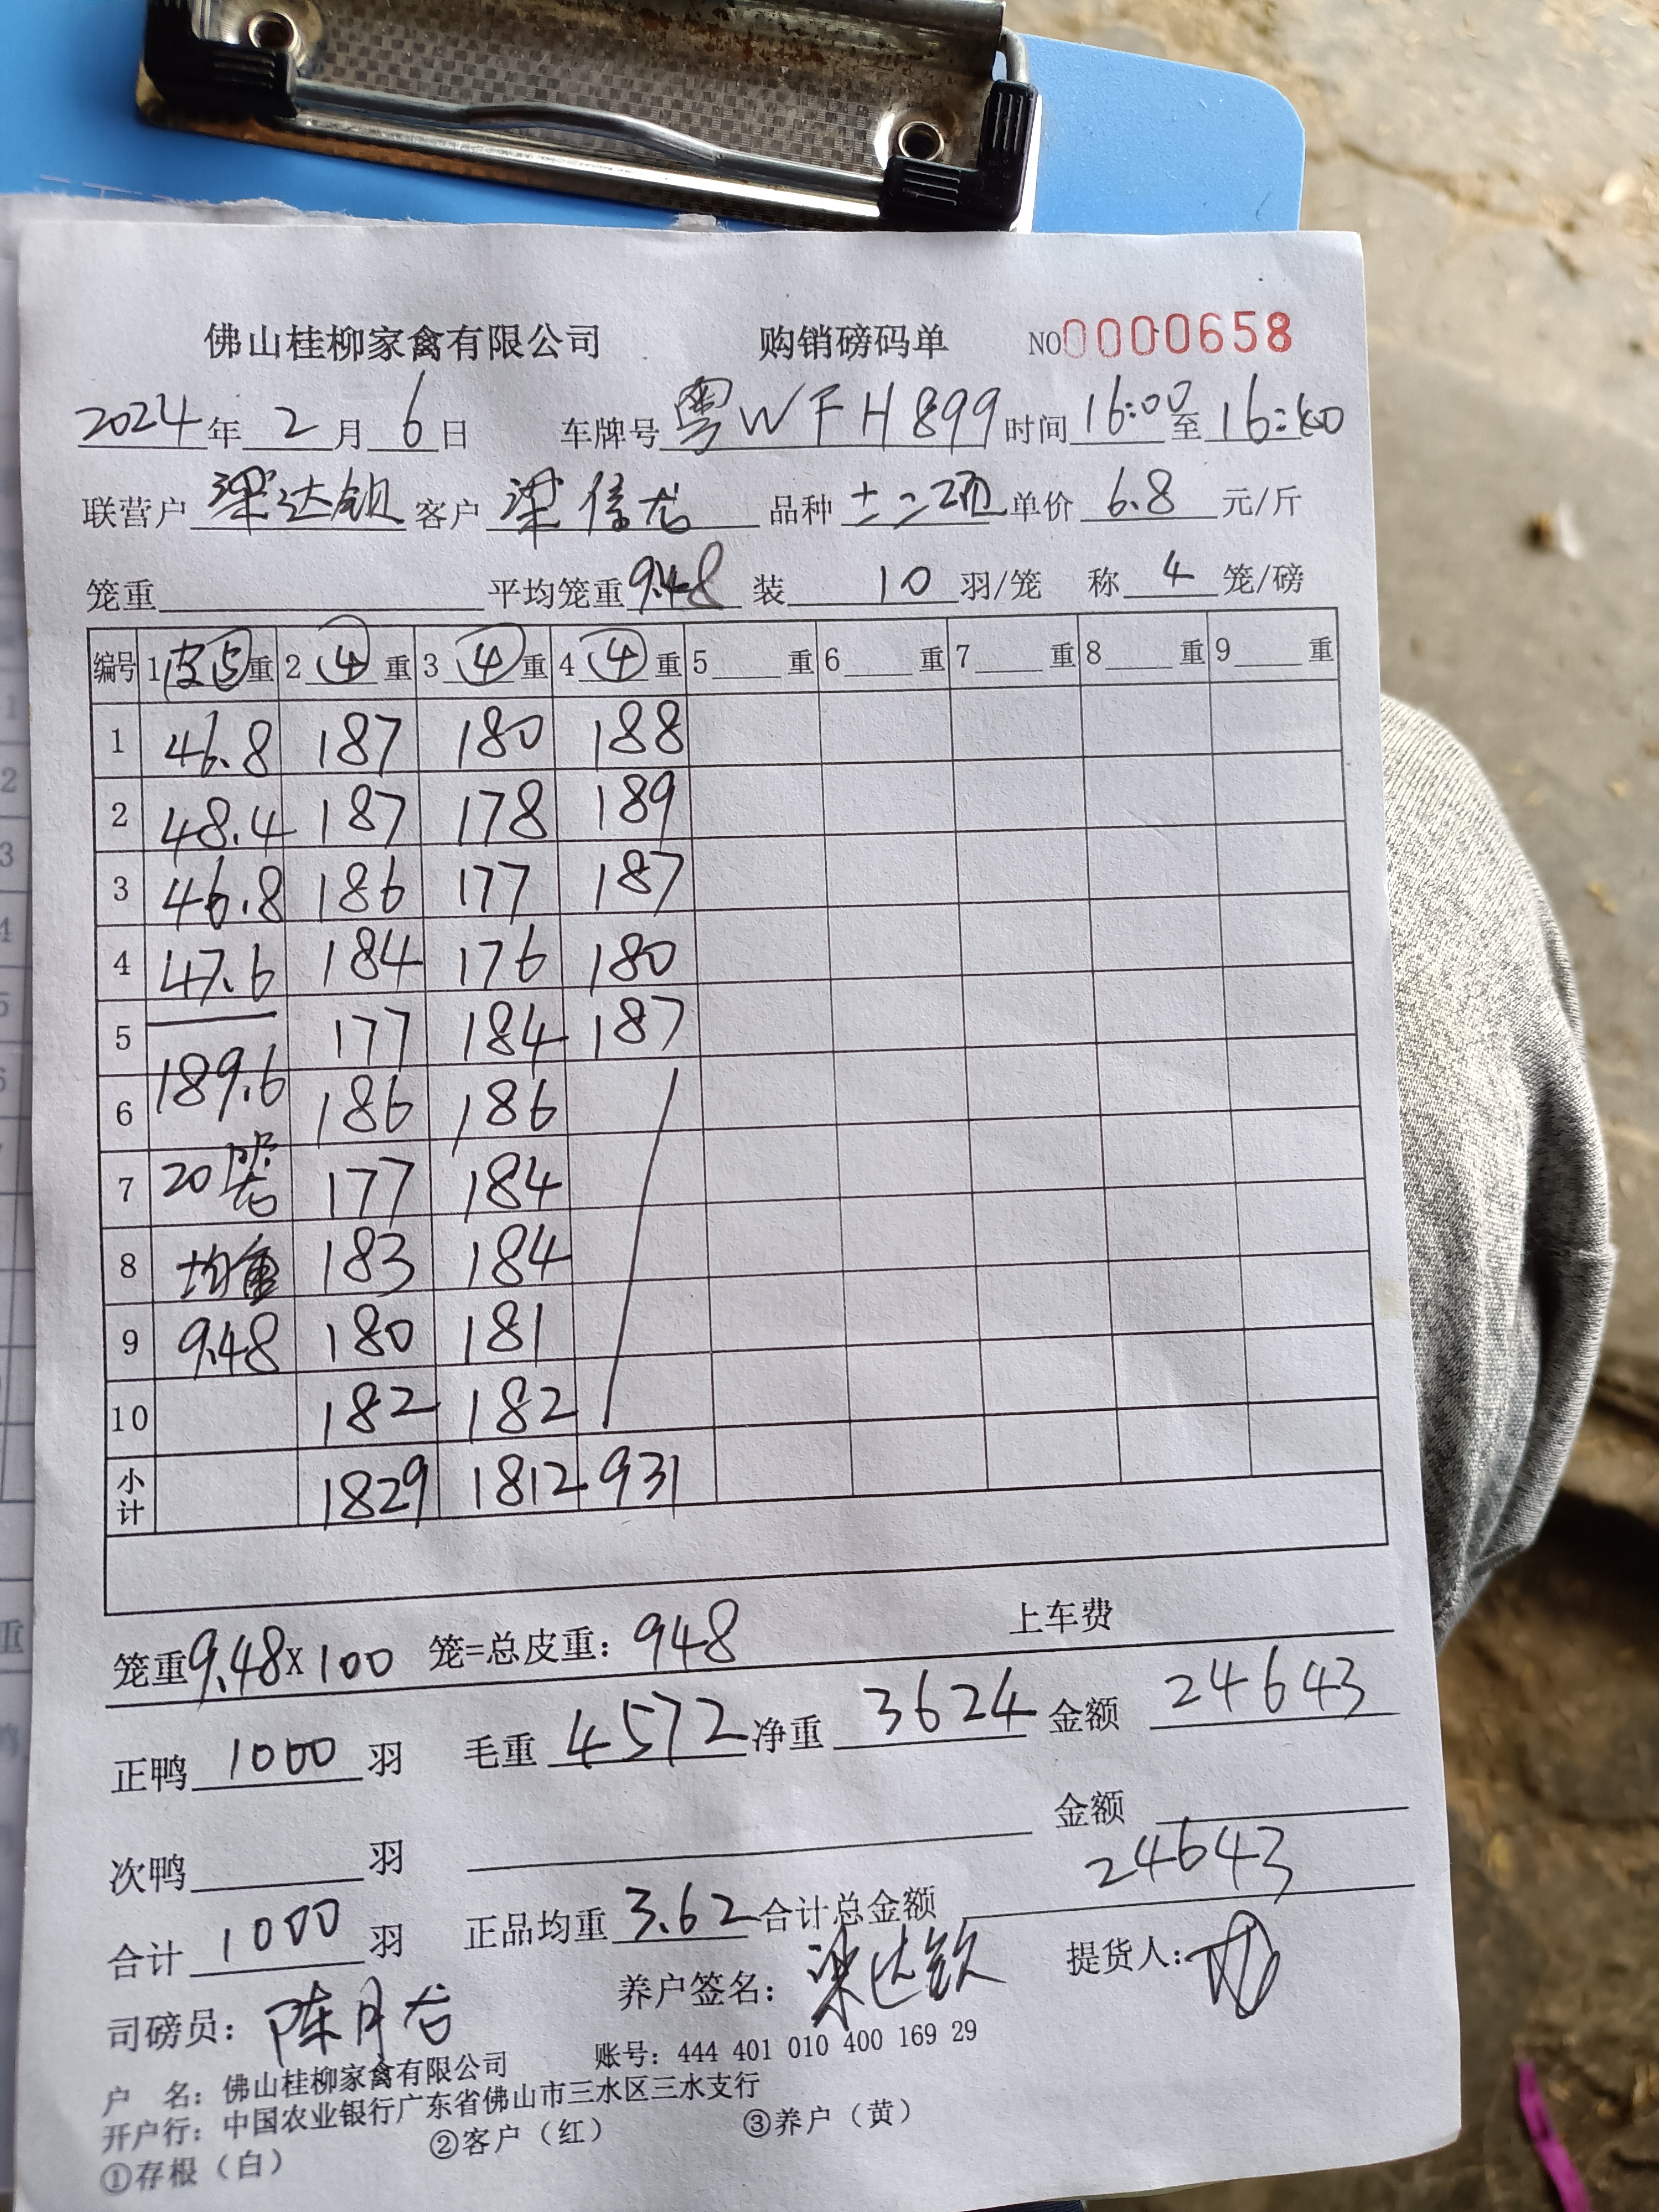 佛山桂柳家禽有限公司 购销磅码单 NO0000658
2024年2月6日 车牌号粤WFH899时间16:00至16:40
联营户梁达钦客户梁信龙品种 单价6.8元/斤
笼重 平均笼重9.48装10羽/笼 称4笼/磅
编号 1皮⑤重 2④重 3④重 4④重 5重 6重 7重 8重 9重
1 46.8 187 180 188
2 48.4 187 178 189
3 46.8 186 177 187
4 47.6 184 176 180
5 177 184 187
6 189.6 186 186
7 20 177 184
8 均重 183 184
9 9.48 180 181
10 182 182
小计 1829 1812 931
笼重9.48×100笼=总皮重:948 上车费
正鸭1000羽 毛重4572净重3624金额24643
次鸭羽 金额
合计1000羽 正品均重3.62合计总金额24643
司磅员:陈月 养户签名:梁达钦 提货人:
户 名:佛山桂柳家禽有限公司 账号:444 401 010 400 169 29
开户行:中国农业银行广东省佛山市三水区三水支行
①存根(白) ②客户(红) ③养户(黄)